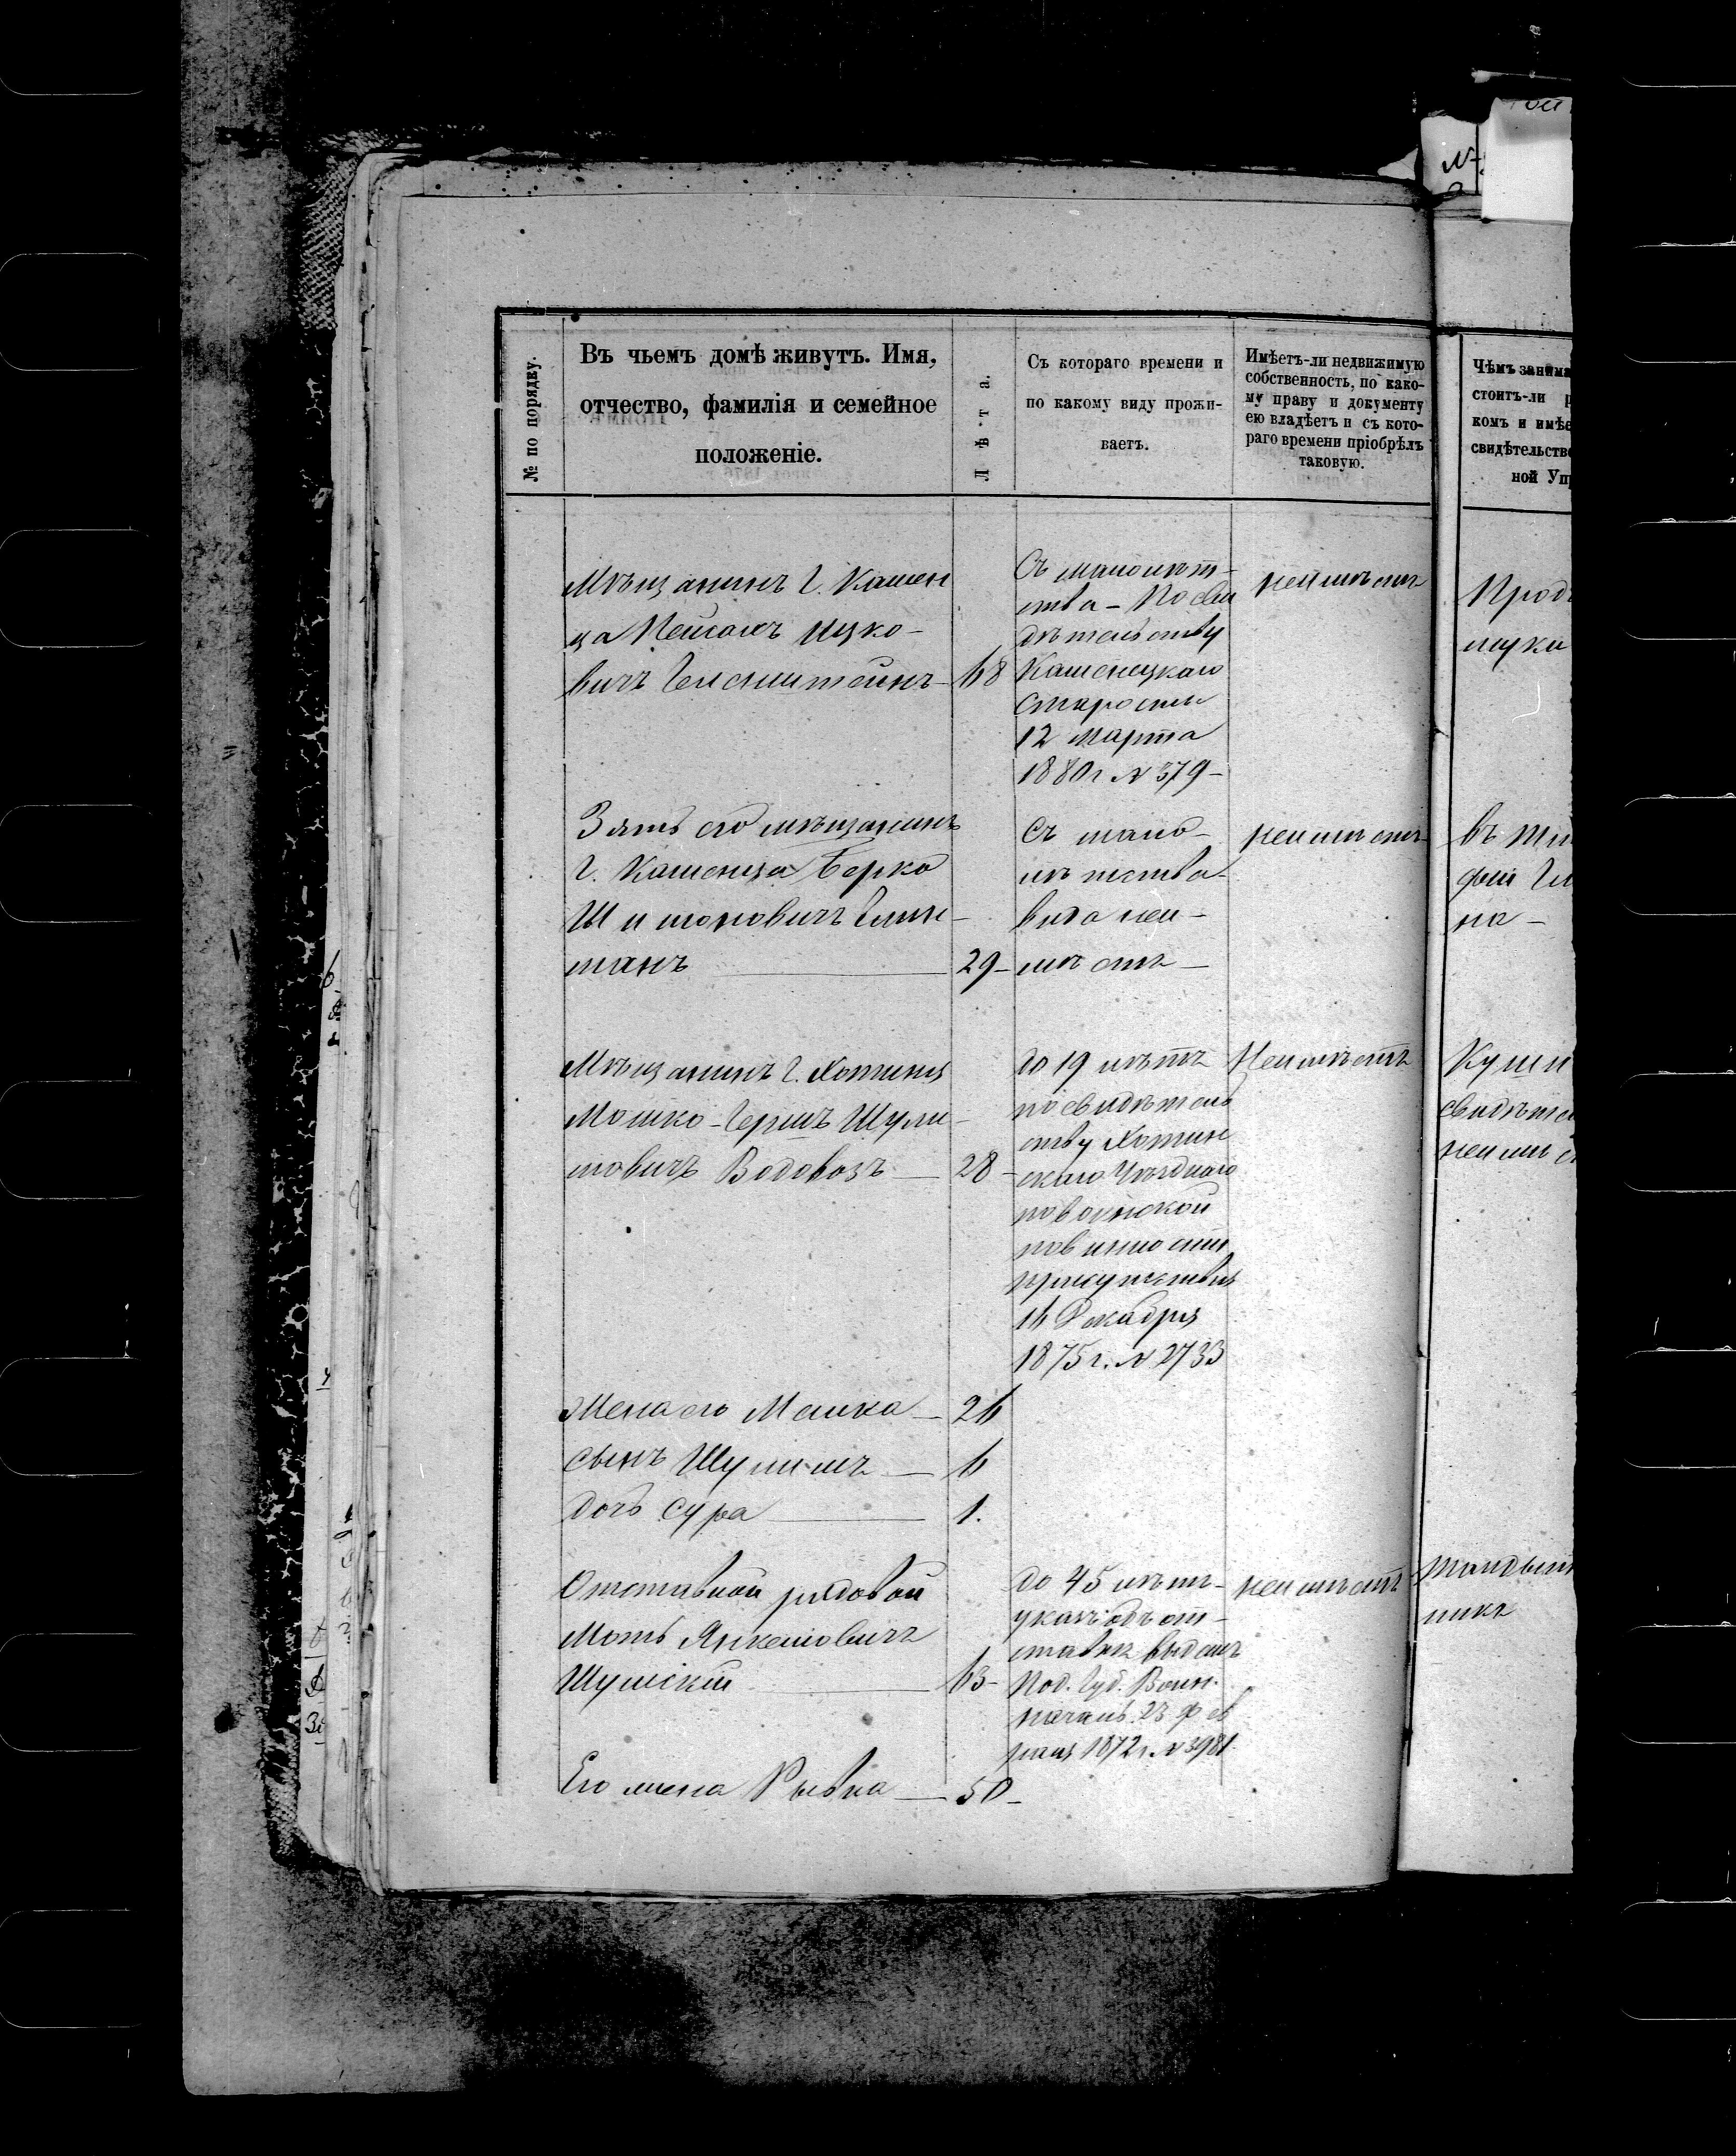 № по порядку.
Въ чьемъ домѣ живутъ. Имя,
отчество, фамилія и семейное
положеніе.
Лѣта.
Съ котораго времени и
по какому виду прожи-
ваетъ.
Имѣетъ-ли недвижимую
собственность, по како-
му праву и документу
ею владѣетъ и съ кото-
раго времени пріобрѣлъ
таковую.
Чѣмъ занима
стоитъ-ли
комъ и имѣе
свидѣтельство
ной Упр
Мѣщанинъ г. Камен
ца Пейсахъ Ицко-
вичъ 68
Съ малолѣт-
ства - По сви
дѣтельству
Каменецкаго
старосты
12 марта
1880 г. № 379 -
неимѣетъ
Прод
муки
Зять его мѣщанинъ
г. Каменца Берко
Шимоновичъ Глин-
манъ 29 -
съ мало-
лѣтства -
вида неи-
мѣетъ -
неимѣетъ -
въ
на -
Мѣщанинъ г. Хотина
Мошко-Гершъ Шули-
мовичъ Водовозъ 28 -
до 19 лѣтъ
по свидѣтель
ству Хотин
скаго Уѣзднаго
по воинской
повинности
присутствія
16 Декабря
1875 г. № 2733
Неимѣетъ
свидѣте
неимѣ
Жена его Малка 26
сынъ Шулимъ 6
дочь Сура 1.
Отставной рядовой
Моть Янкелевичъ
Шумскій 63 -
до 45 лѣтъ -
указъ объ от-
ставкѣ выданъ
Под. Губ. Воин.
началь. 23 Фев
раля 1872 г. № 3981.
неимѣетъ
никъ
Его жена Рывка 50 -